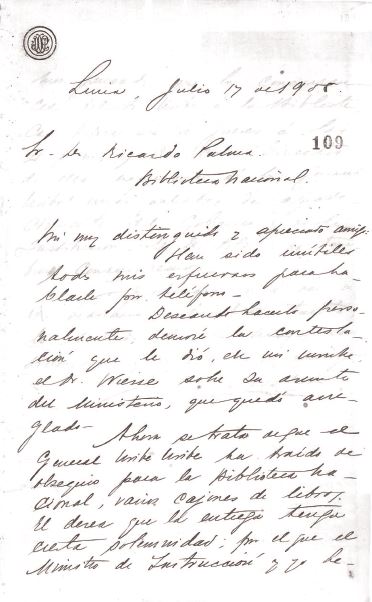 Lima, Julio 17 de 1908.
109
Sr. Dr. Ricardo Palma.
Biblioteca Nacional.
Mi muy distinguido y apreciado amigo:
Han sido inútiles
todos mis esfuerzos para ha-
blarle por teléfono -
Deseando hacerlo perso-
nalmente, demoré la contesta-
ción que le dió, en mi nombre,
el Dr. Wiesse sobre su asunto
del Ministerio, que quedó arre-
glado -
Ahora se trata de que el
General Uribe Uribe ha traido de
obsequio para la Biblioteca Na-
cional, varios cajones de libros.
El desea que la entrega tenga
cierta solemnidad; por el que el
Ministro de Instrucción y yo he-